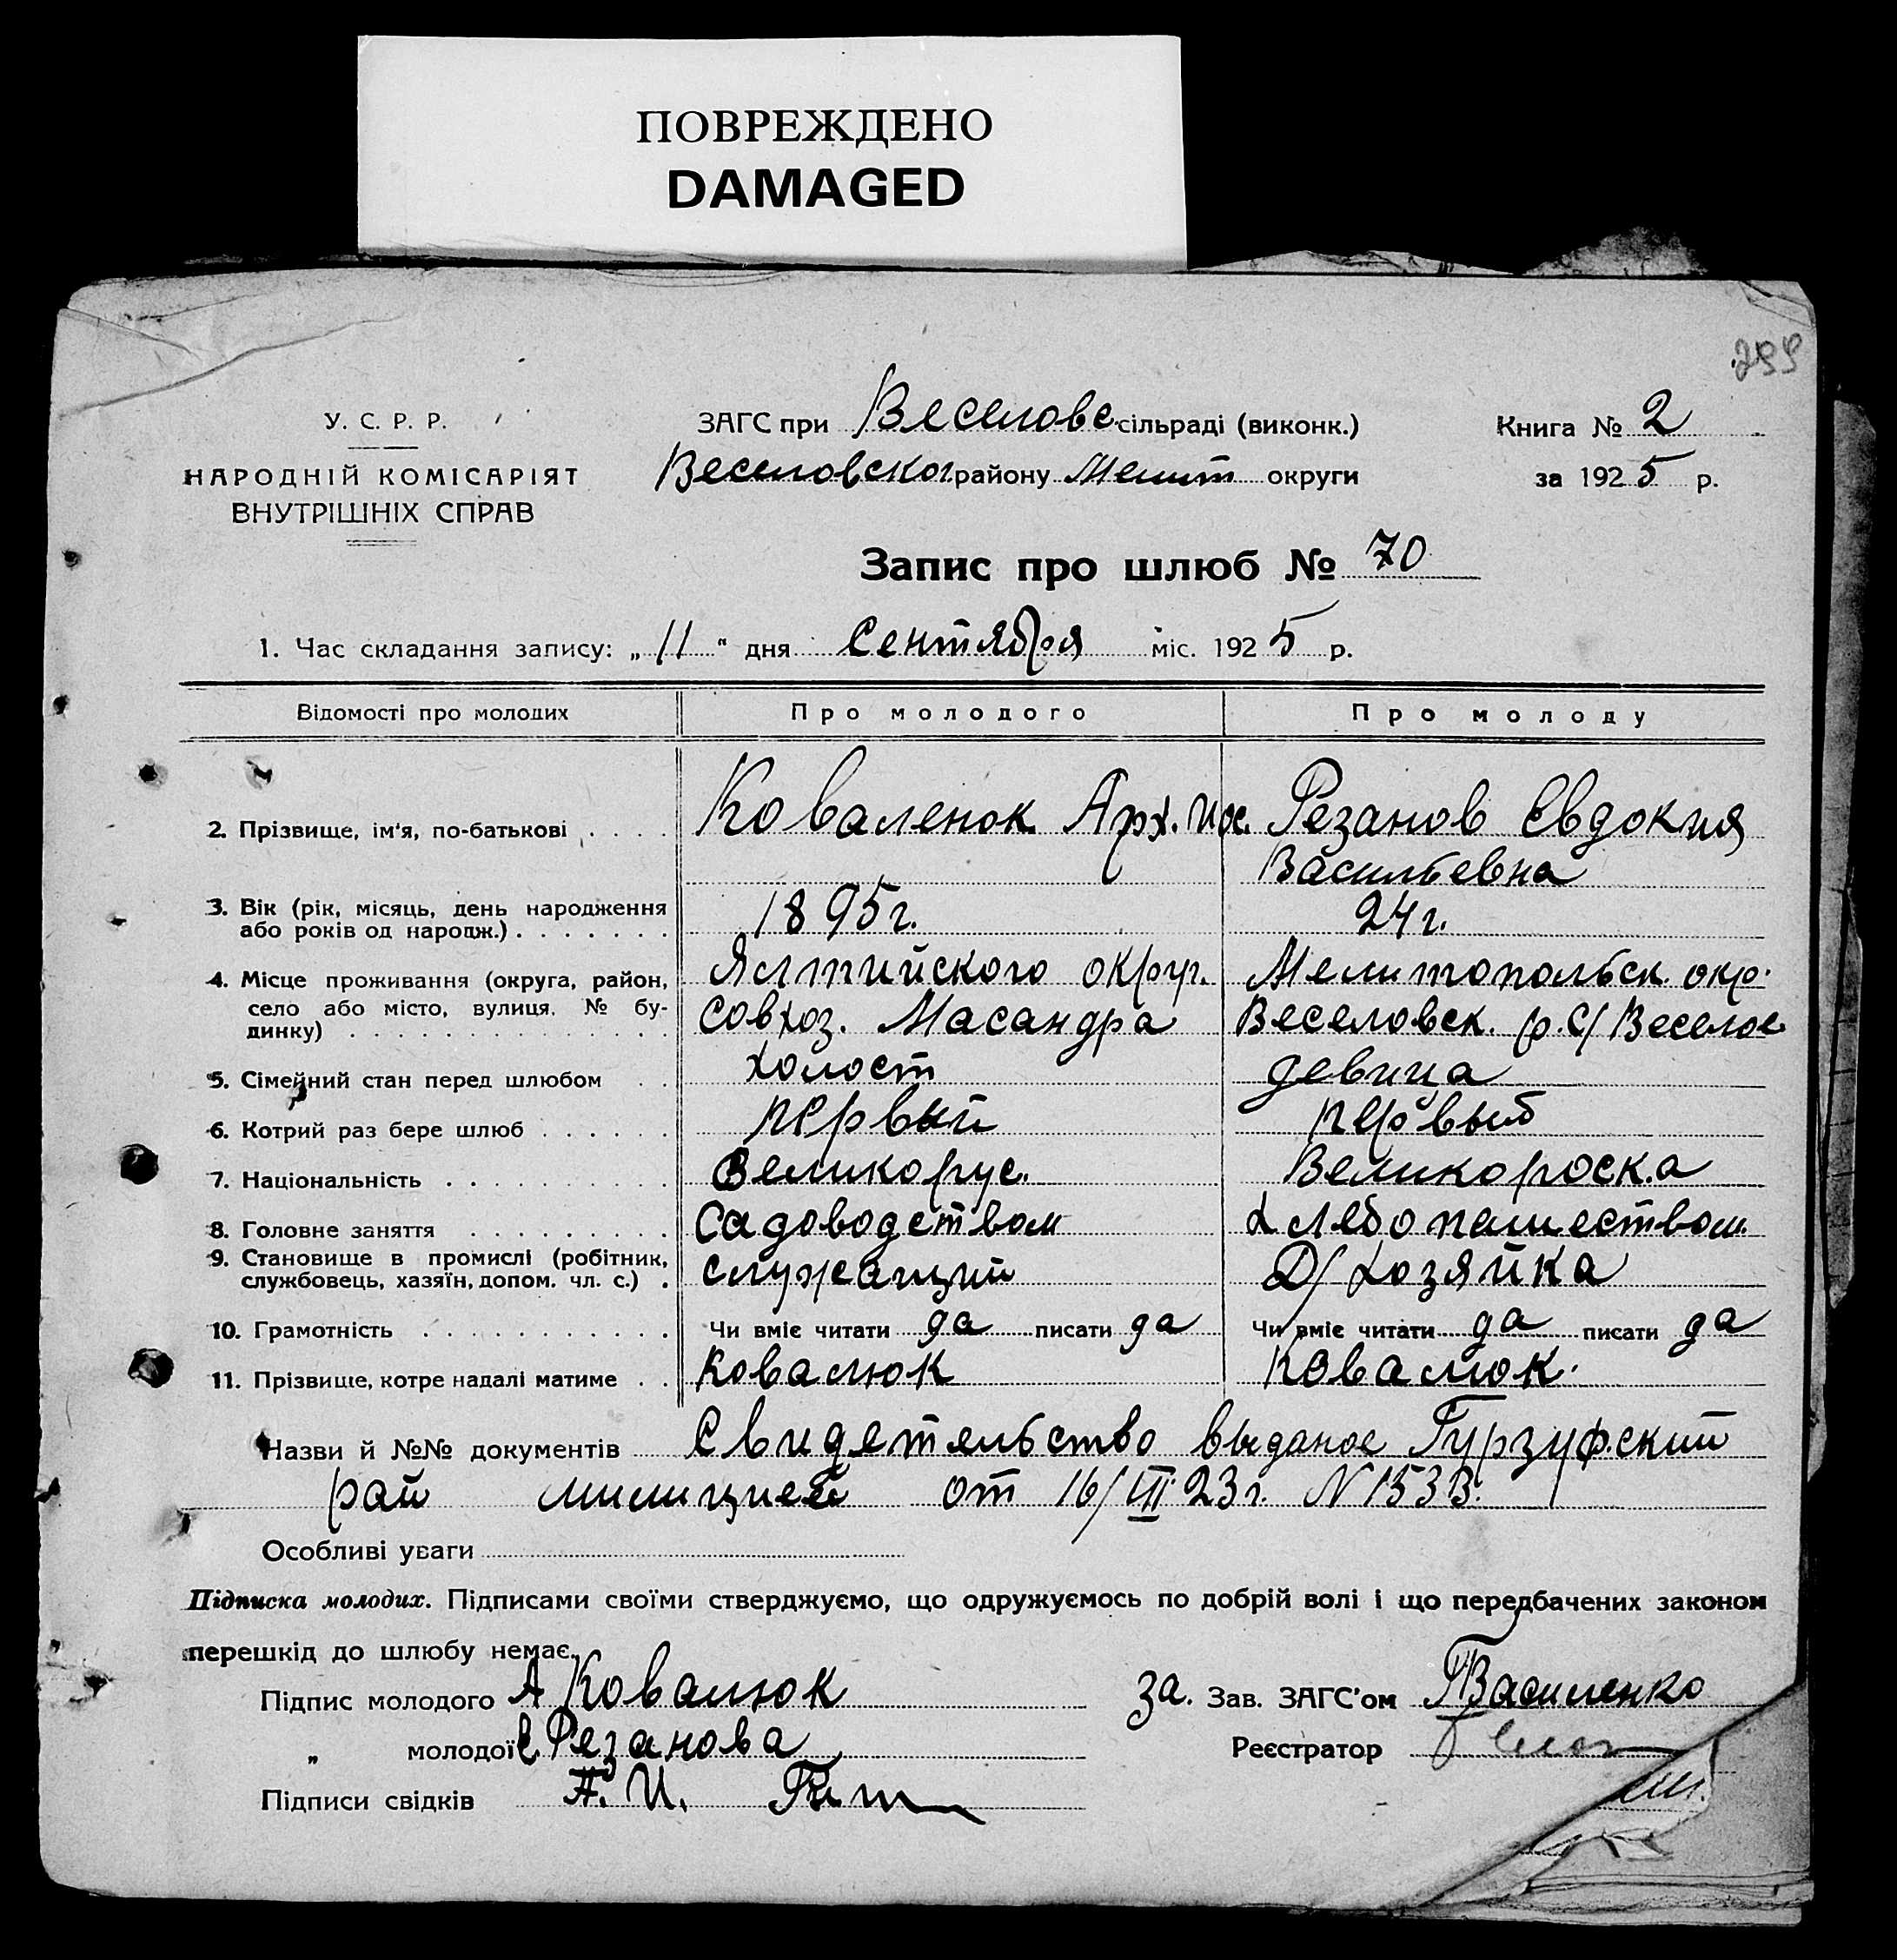 ПОВРЕЖДЕНО
DAMAGED
299
У. С. Р. Р.
НАРОДНІЙ КОМІСАРІЯТ
ВНУТРІШНІХ СПРАВ
ЗАГС при Веселовс. сільраді (виконк.)
Веселовског району Мелит округи
Книга № 2
за 1925 р.
Запис про шлюб № 70
1. Час складання запису: „ 11 " дня Сентября міс. 1925 р.
Відомості про молодих Про молодого Про молоду
2. Прізвище, ім'я, по-батькові Коваленок Арх. Иос. Резанов Евдокия
Васильевна
3. Вік (рік, місяць, день народження
або років од народж.) 1895 г. 24 г.
4. Місце проживання (округа, район,
село або місто, вулиця, № бу-
динку)
Ялтийского округ.
совхоз. Масандра
Мелитопольск. окр.
Веселовск. р. С/ Веселое
5. Сімейний стан перед шлюбом холост девица
6. Котрий раз бере шлюб первый первый
7. Національність Великорус. Великороска
8. Головне заняття Садоводством хлебопашеством
9. Становище в промислі (робітник,
службовець, хазяїн, допом. чл. с.) служащий Д/хозяйка
10. Грамотність Чи вміє читати да писати да Чи вміє читати да писати да
11. Прізвище, котре надалі матиме Ковалюк Ковалюк.
Назви й №№ документів Свидетельство выданое Гурзуфский
рай милицией от 16/III 23 г. N 1533.
Особливі уваги
Підписка молодих. Підписами своїми стверджуємо, що одружуємось по добрій волі і що передбачених законом
перешкід до шлюбу немає.
Підпис молодого А Ковалюк
за. Зав. ЗАГС'ом Василенко
„ молодої Е Резанова
Реєстратор
Підписи свідків П. И.